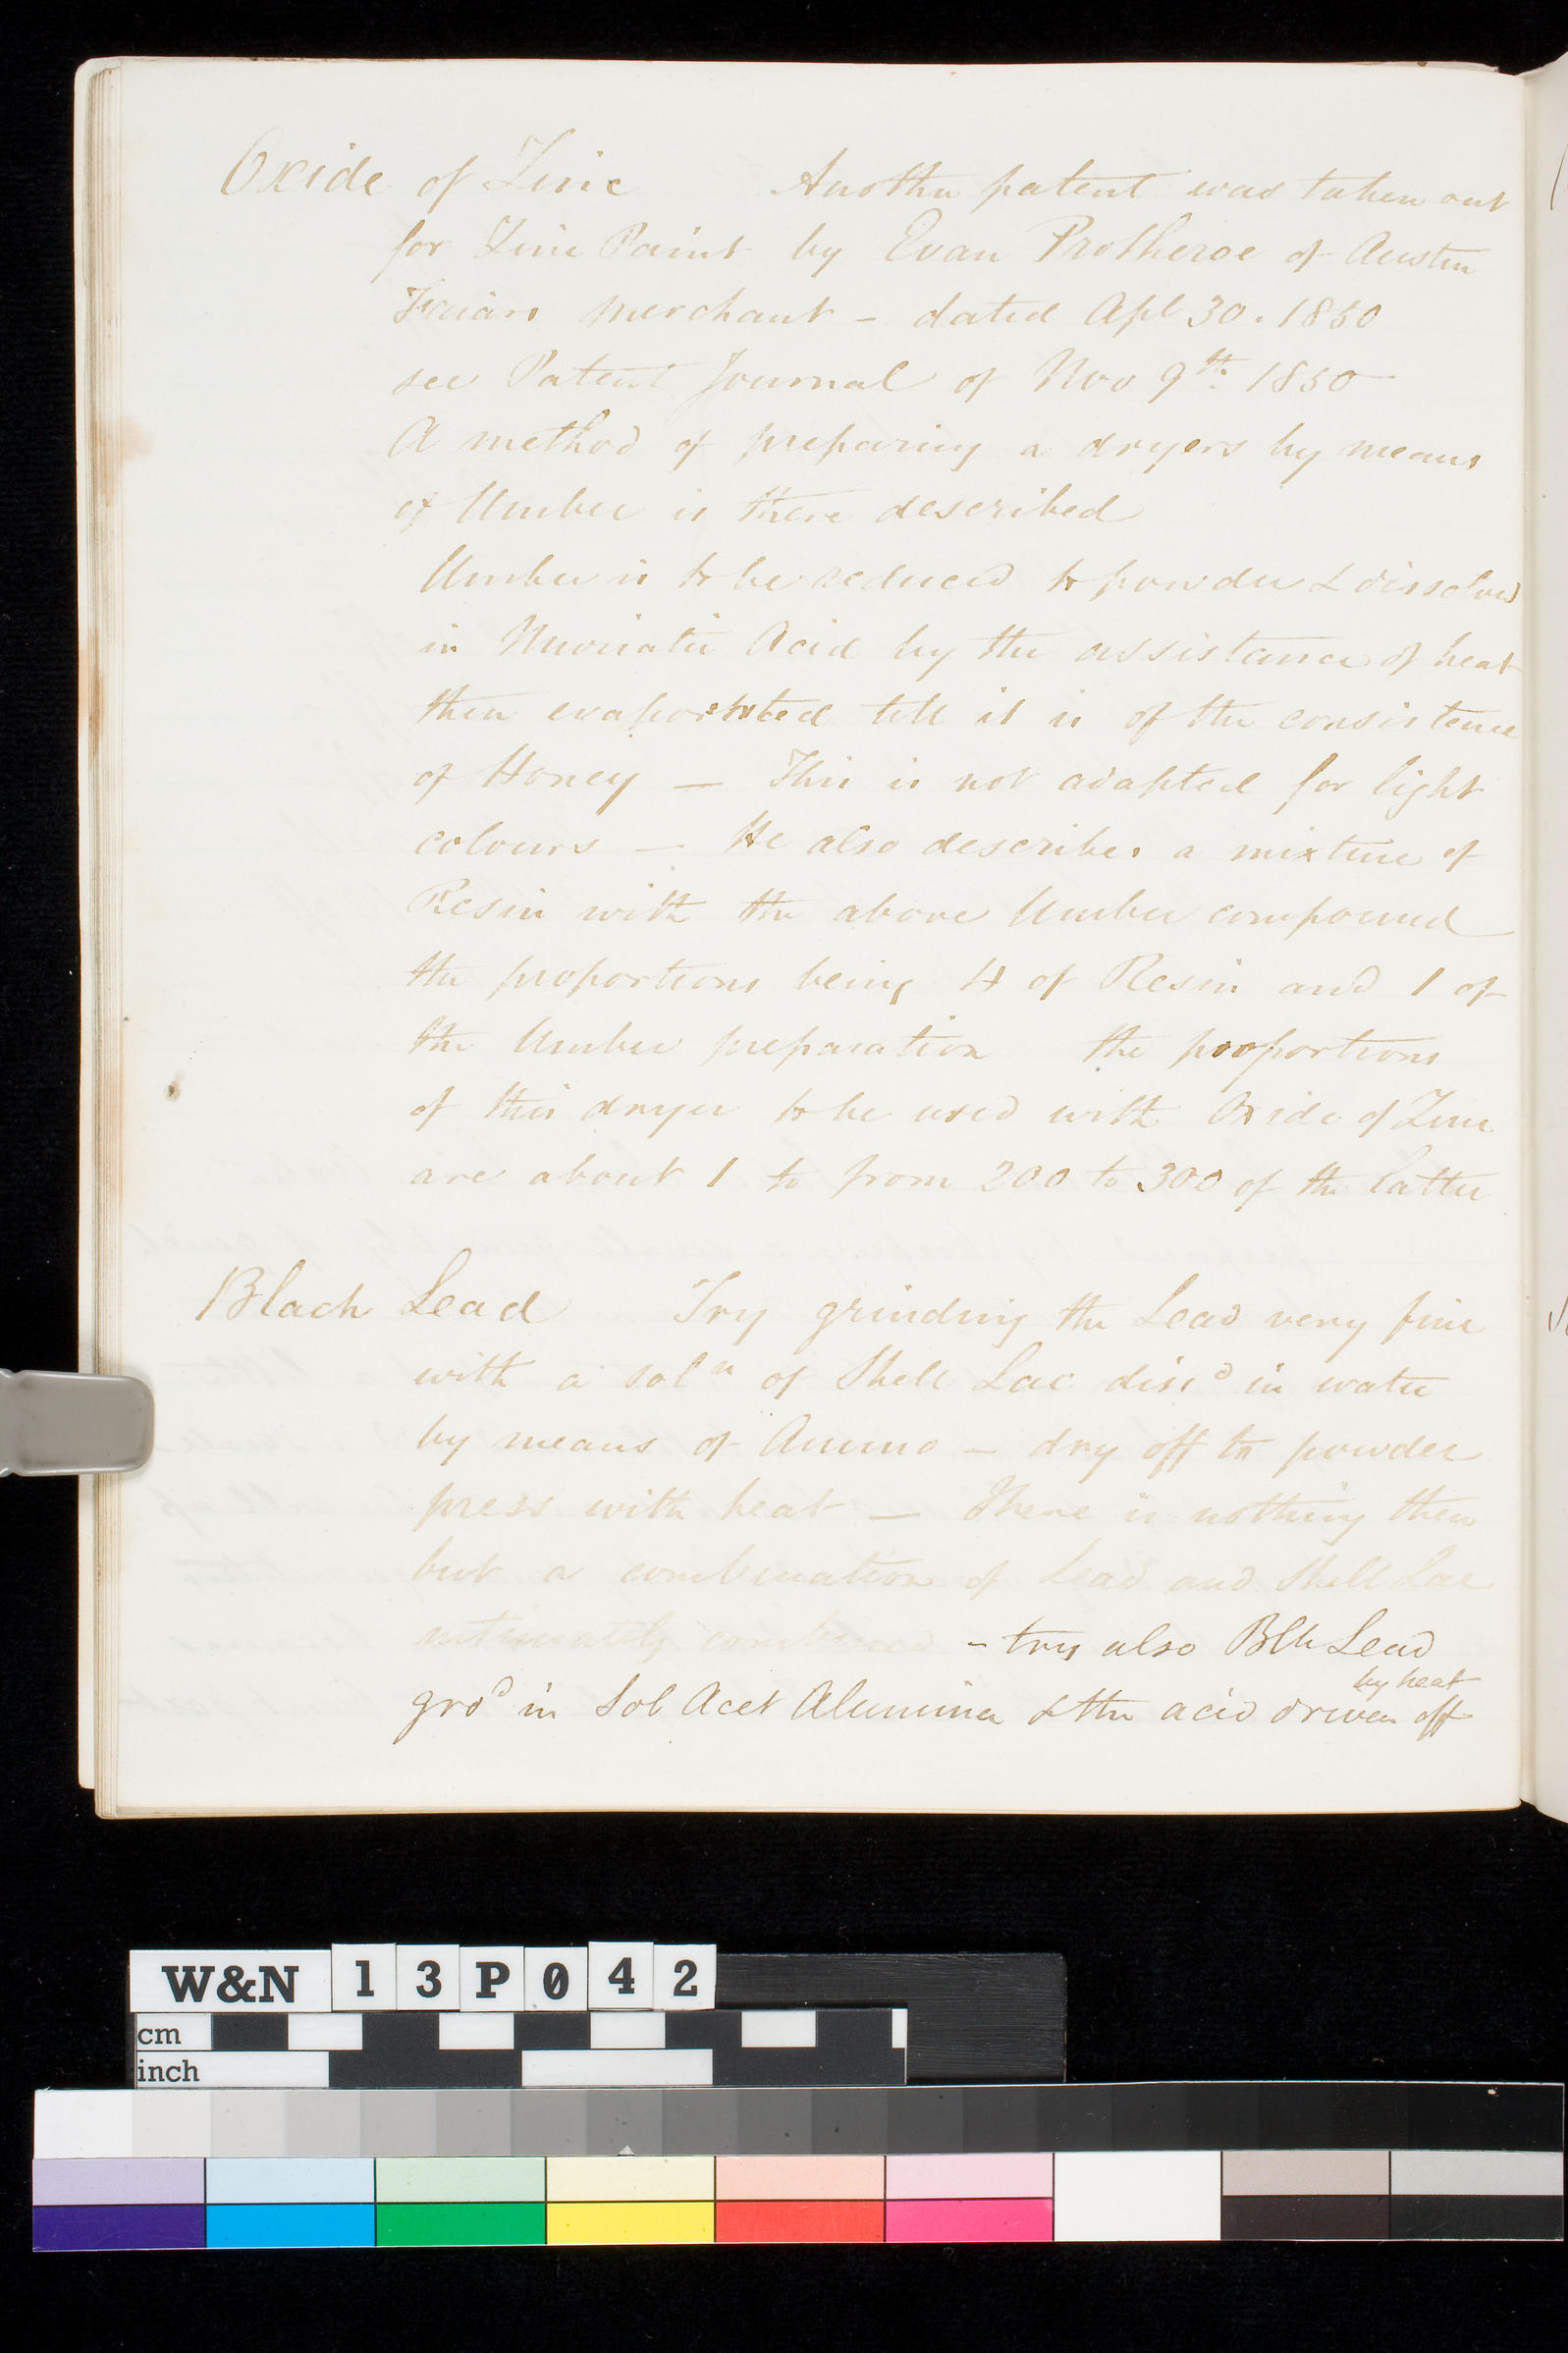 Oxide of Zinc Another patent was taken out
for Zinc Paint by Evan Protheroe of Austin
Friars merchant – dated Apl 30. 1850
see Patent Journal of Nov 9th 1850
A method of preparing a dryers by means
of Umber is there described
Umber is to be reduced to powder & dissolved
in Muriatic Acid by the assistance of heat
then evaporated till it is of the consistence
of Honey – This is not adapted for light
colours – He also describes a mixture of
Resin with the above Umber compound
the proportions being 4 of Resin and 1 of
the Umber preparation the proportions
of this dryer to be used with Oxide of Zinc
are about 1 to from 200 to 300 of the latter
Black Lead Try grinding the Lead very fine
with a soln of Shell Lac dissd in water
by means of Ammo – dry off to powder
press with heat – There is nothing then
but a combination of Lead and Shell Lac
intimately combined – try also Blk Lead
by heat
grod in Sol Acet Alumina & the acid driven off
W&N 13P042
cm
inch